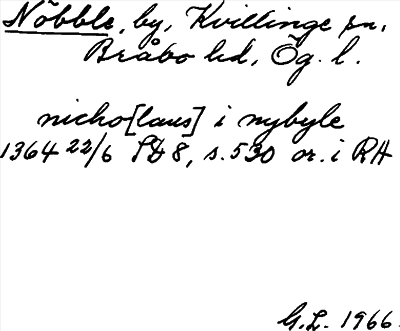 Nöbble, by, Kvillinge sn,
Bråbo hd, Ög. l.
nicho[laus] i nybyle
1364 22/6 SD 8, s. 530 or. i RA
G.L. 1966.